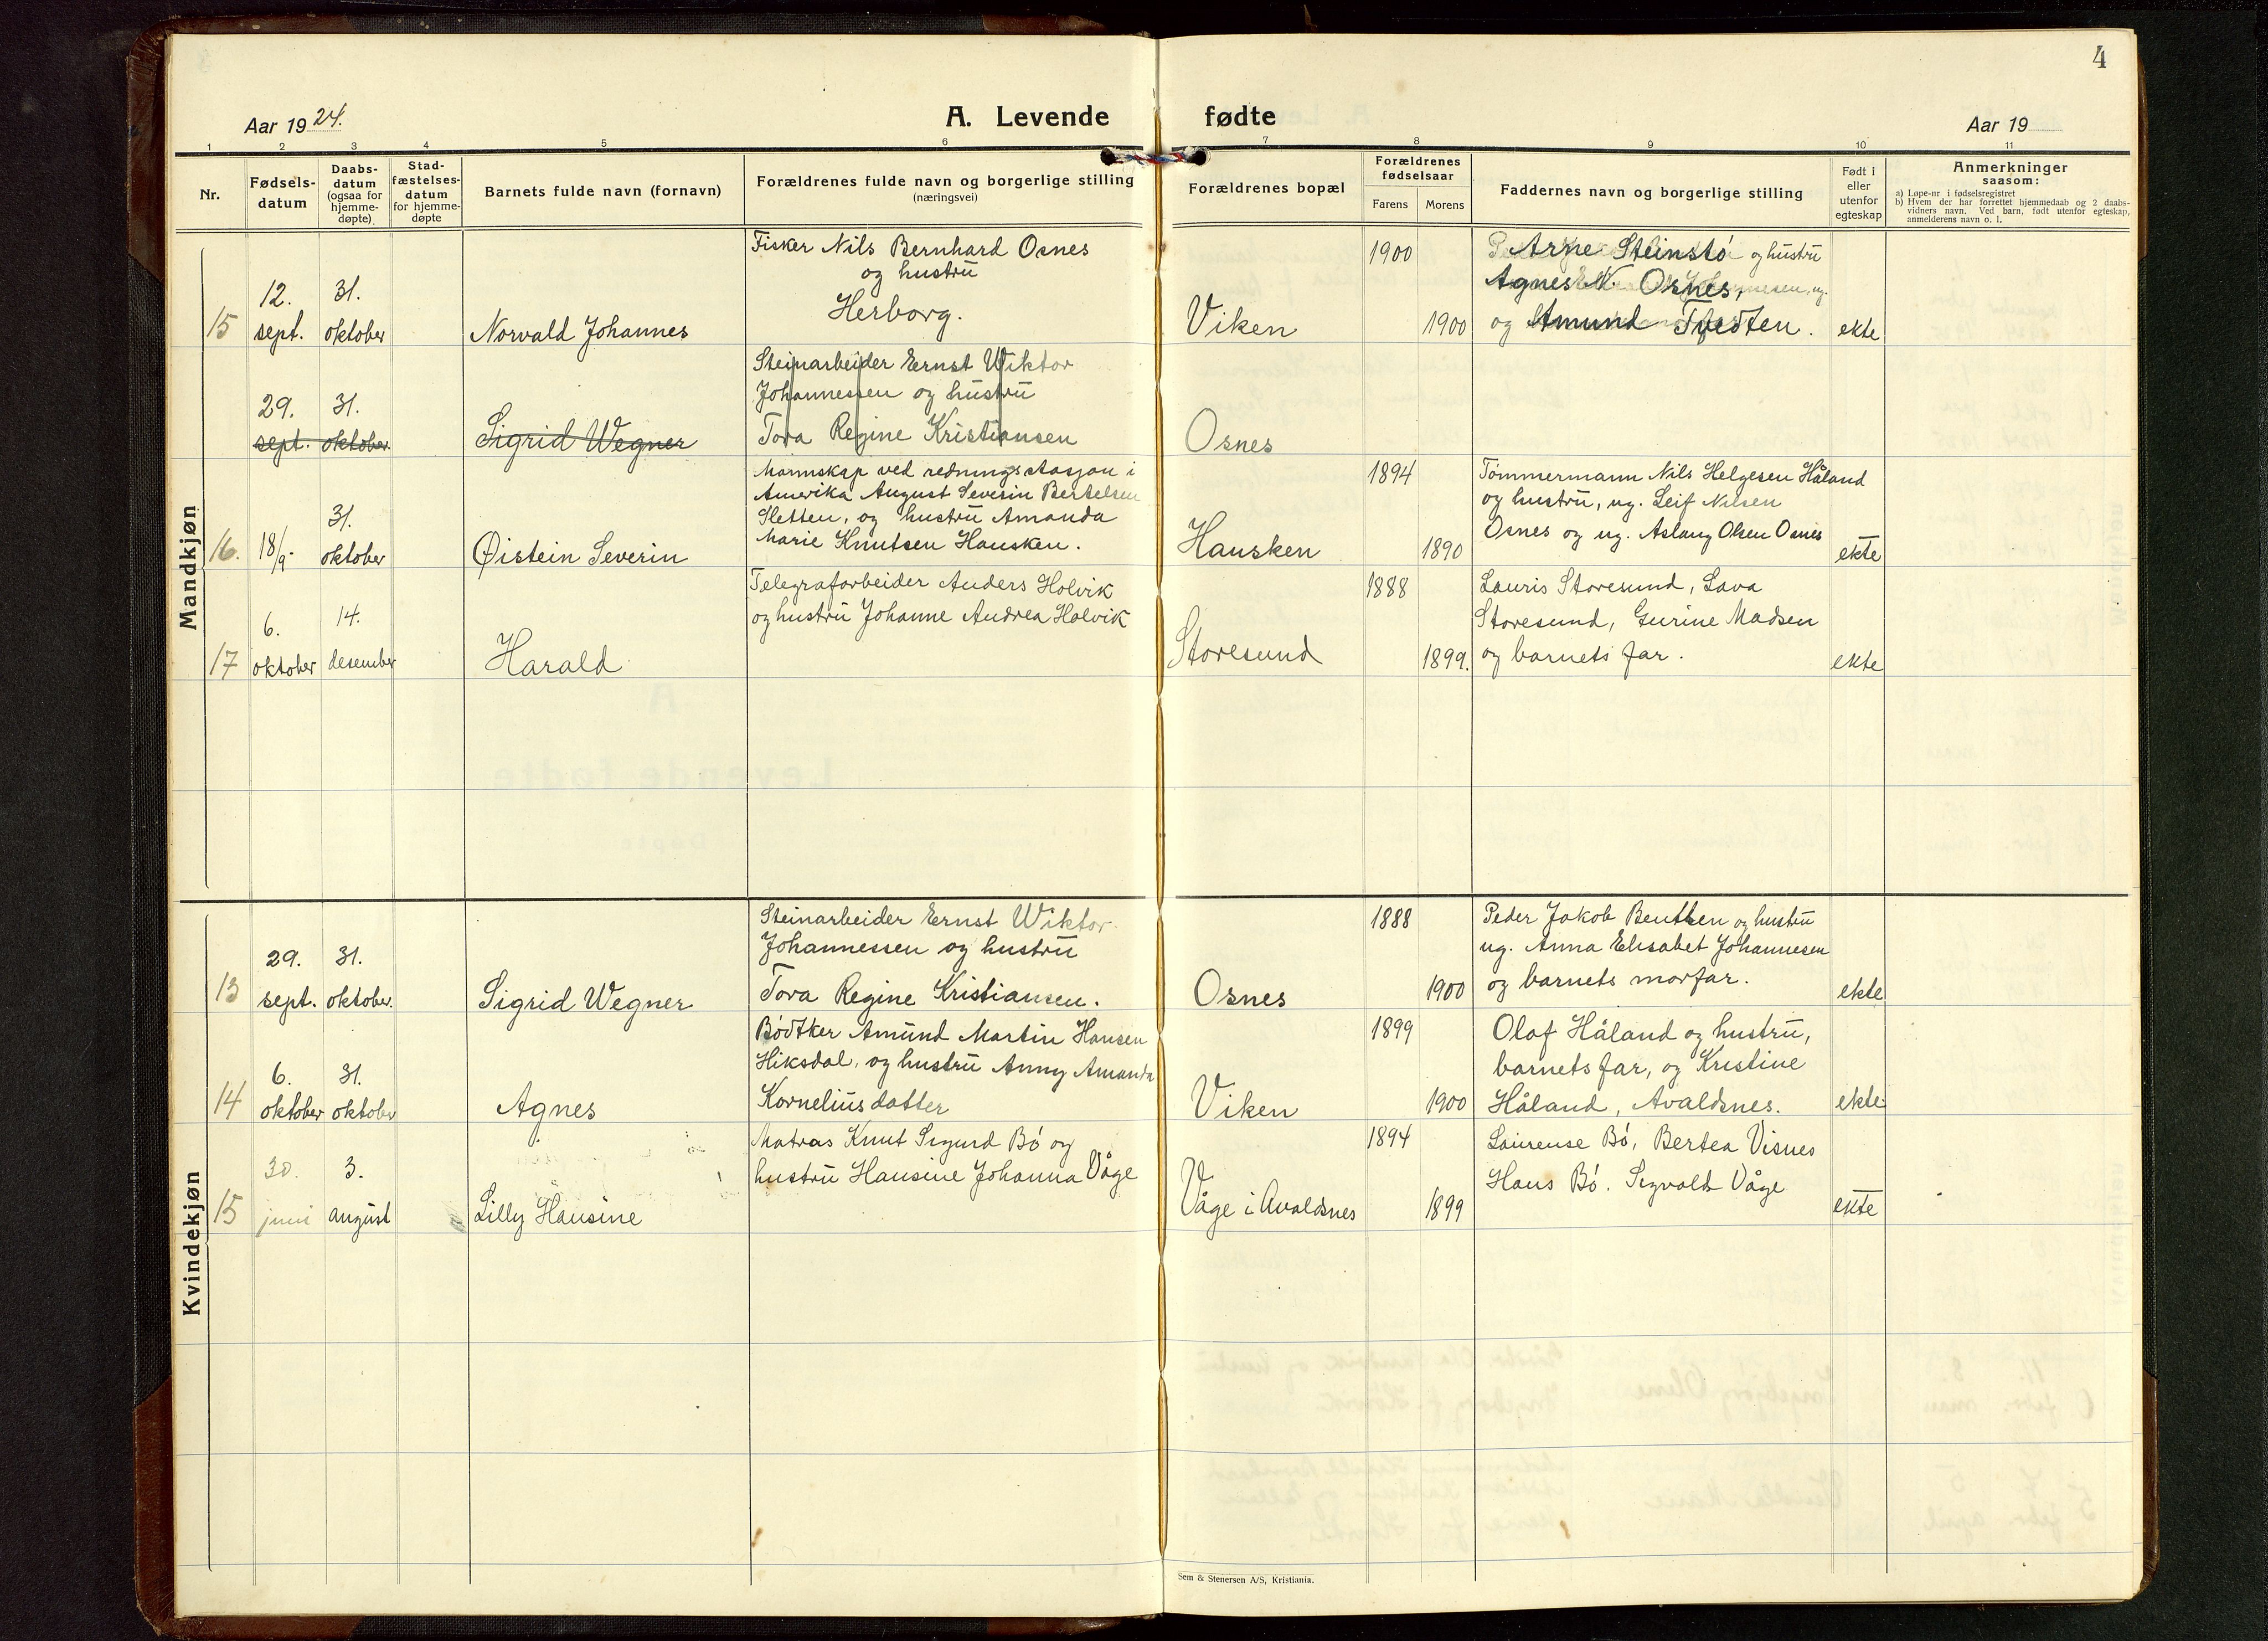 4
Aar 1924.
A. Levende fødte
Aar 19
1 2 3 4 5 6 7 8 9 10 11
Nr.
Fødsels-
datum
Daabs-
datum
(ogsaa for
hjemme-
døpte)
Stad-
fæstelses-
datum
for hjemme-
døpte
Barnets fulde navn (fornavn)
Forældrenes fulde navn og borgerlige stilling
(næringsvei)
Forældrenes bopæl
Forældrenes
fødselsaar
Farens Morens
Faddernes navn og borgerlige stilling
Født i
eller
utenfor
egteskap
Anmerkninger
saasom:
a) Løpe-nr i fødselsregistret
b) Hvem der har forrettet hjemmedaab og 2 daabs-
vidners navn. Ved barn, født utenfor egteskap,
anmelderens navn o. l.
Mandkjøn
15
12.
sept.
31.
oktober
Norvald Johannes
Fisker Nils Bernhard Osnes
og hustru
Herborg.
Viken
1900
1900
Arne Steinstø og hustru
Agnes N. Osnes,
og Amund Tvedten.
ekte
29.
sept.
31.
oktober
Sigrid Wegner
Steinarbeider Ernst Wiktor
Johannessen og hustru
Tora Regine Kristiansen
Osnes
16.
18/9-
31.
oktober
Øistein Severin
Mannskap ved redningsstasjon i
Amerika August Severin Bertelsen
Sletten, og hustru Amanda
Marie Knutsen Hausken.
Hausken
1894
1890
Tømmermann Nils Helgesen Håland
og hustru, ug. Leif Nilsen
Osnes og ug. Aslaug Olsen Osnes
ekte
17
6.
oktober
14.
desember
Harald
Telegrafarbeider Anders Holvik
og hustru Johanne Andrea Holvik
Storesund
1888
1899.
Lauris Storesund, Lava
Storesund, Gurine Madsen
og barnets far.
ekte
Kvindekjøn
13
29.
sept.
31.
oktober.
Sigrid Wegner
Steinarbeider Ernst Wiktor
Johannessen og hustru
Tora Regine Kristiansen.
Osnes
1888
1900
Peder Jakob Bentsen og hustru
ug. Anna Elisabet Johannesen
og barnets morfar.
ekte
14
6.
oktober
31.
oktober
Agnes
Bødtker Amund Martin Hansen
Hiksdal, og hustru Anny Amanda
Korneliusdatter
Viken
1899
1900
Olaf Håland og hustru,
barnets far, og Kristine
Håland, Avaldsnes.
ekte
15
30.
juni
3.
august
Lilly Hansine
Matros Knut Sigurd Bø og
hustru Hansine Johanna Våge
Våge i Avaldsnes
1894
1899
Laurense Bø, Bertea Visnes
Hans Bø. Sigvald Våge
ekte
Sem & Stenersen A/S, Kristiania.